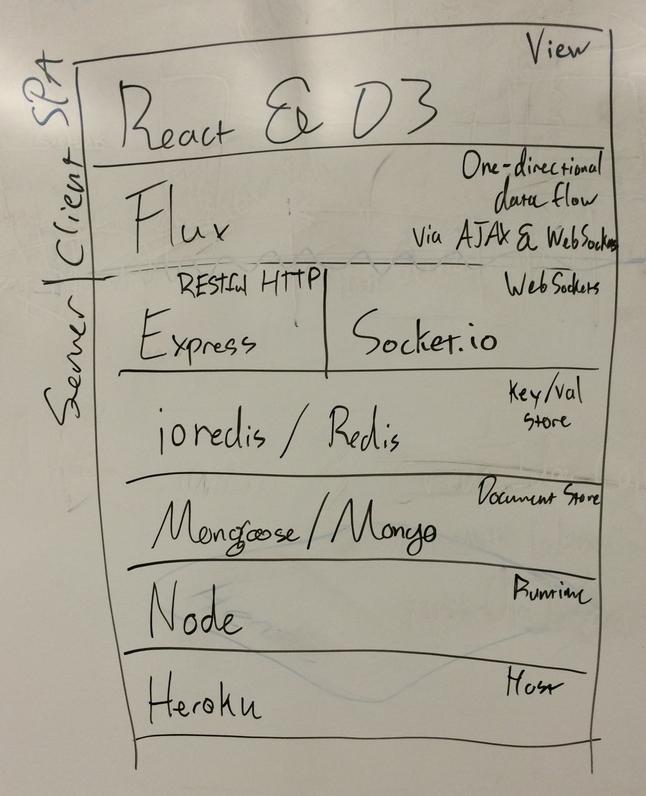 View
React & D3
One-directional
data flow
Flux
via AJAX & WebSockets
RESTful HTTP
WebSockets
Express
Socket.io
Key/Val
Store
ioredis / Redis
Document Store
Mongoose/Mongo
Runtime
Node
Host
Heroku
Client SPA
Server